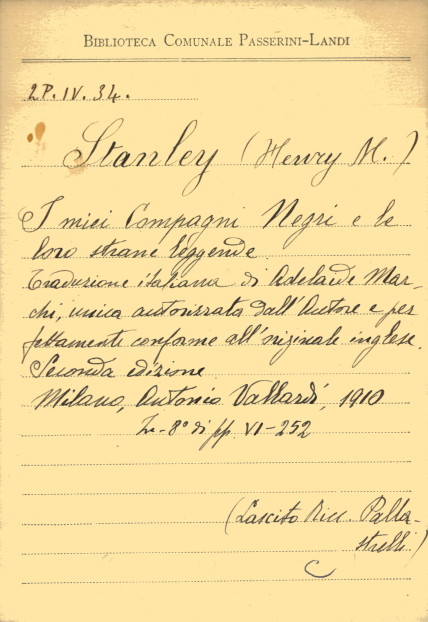 BIBLIOTECA COMUNALE PASSERINI-LANDI
2P.IV.34.
Stanley (Henry M.)
I miei Compagni Negri e le
loro strane leggende.
Traduzione italiana di Adelaide Mar-
chi, unica autorizzata dall'Autore e per
fettamente conforme all'originale inglese.
Seconda edizione
Milano, Antonio Vallardi, 1910
In-8° di pp. VI-252
(Lascito Ricc. Palla-
strelli)
C